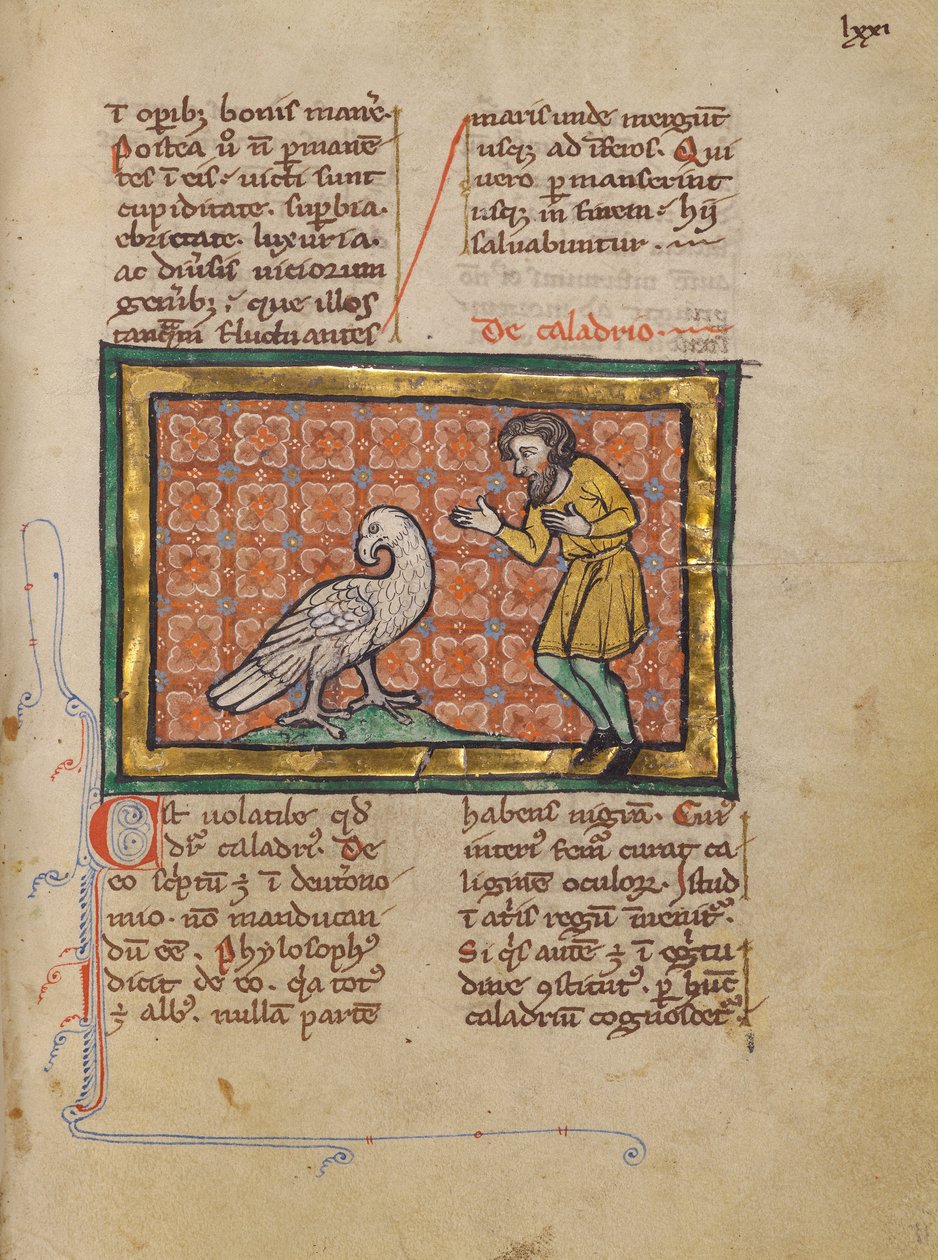 lxxi
⁊ op̄ibꝫ bonis manēˀ.
Postea ů n̄ ꝑmanē
tes ī eis. victi sunt
cupiditate. suꝑbia.
ebrietate. luxuria.
ac diūsis viciorum
gen̄ibꝫ; que illos
tanqᵃm fluctuantes
maris unde mergūt
usqꝫ ad īferos. Qui
vero ꝑmanserint
usqꝫ in finem. hij
salvabuntur.
De caladrio.
Est volatile qd̄
dr̄ caladriꝰ. De
eo sc̄ptū ē ī deut̄ono
mio. nō manducan
dū eē. Phylosophꝰ
dicit de eo. qͥa totꝰ
ē albꝰ. nullā partē
habens nigrā. Cuiꝰ
interiꝰ femᵃ curat ca
liginē oculoꝝ. Istud
ī atͥis regū īvenitᵃ.
Si qͥs autē ē ī egͥtu
dine ꝯstitutꝰ. ꝑ hūc
caladriū cognoscetᵃ.